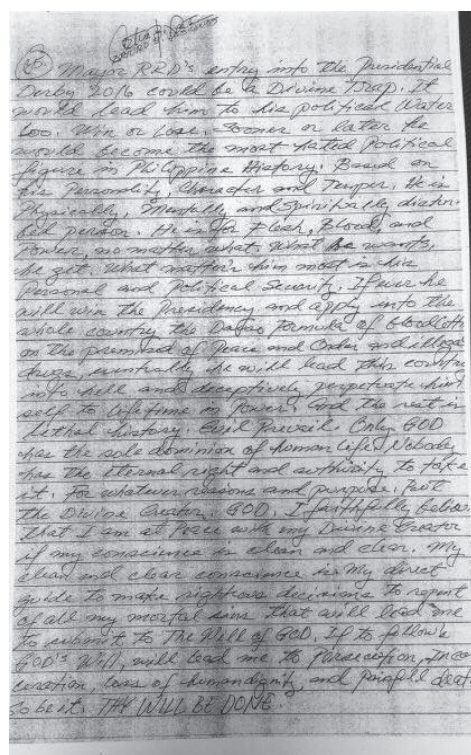 45. Mayor RRD's entry into the Presidential
Derby 2016 could be a Divine Trap. It
would lead him to his political Water
Loo. Win or Lose, Sooner or later he
would become the most hated Political
figure in Philippine History. Based on
his Personality, Character and Temper, He is
Physically, Mentally and Spiritually distur-
bed person. He is for Flesh, Blood, and
Power, no matter what. What he wants,
he get. What matter's him most is his
Personal and Political Security. If ever he
will win the Presidency and apply into the
whole country the Davao Formula of bloodletti
on the premised of Peace and Order and illegal
drugs, eventually he will lead this country
into hell and deceptively perpetrate him
self to lifetime in Power. And the rest is
Lethal history. Evil Prevail. Only GOD
has the sole dominion of human life. Nobody
has the eternal right and authority to take
it. For whatever reasons and purpose. But
the Divine Creator. GOD. I faithfully believe
that I am at Peace with my Divine Creator
if my conscience is clean and clear. My
clean and clear conscience is My direct
guide to make righteous decisions to repent
of all my mortal sins that will lead me
to submit to The Will of GOD. If to follow
GOD's Will, will lead me to Persecution, Incar
ceration, loss of human dignity, and painfull deat
So be it. THY WILL BE DONE.